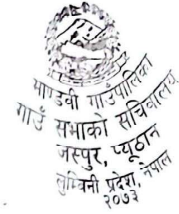 माण्डवी गाउँपालिका
गाउँ सभाको सचिवालय
जस्पुर, प्यूठान
लुम्बिनी प्रदेश, नेपाल
२०७३